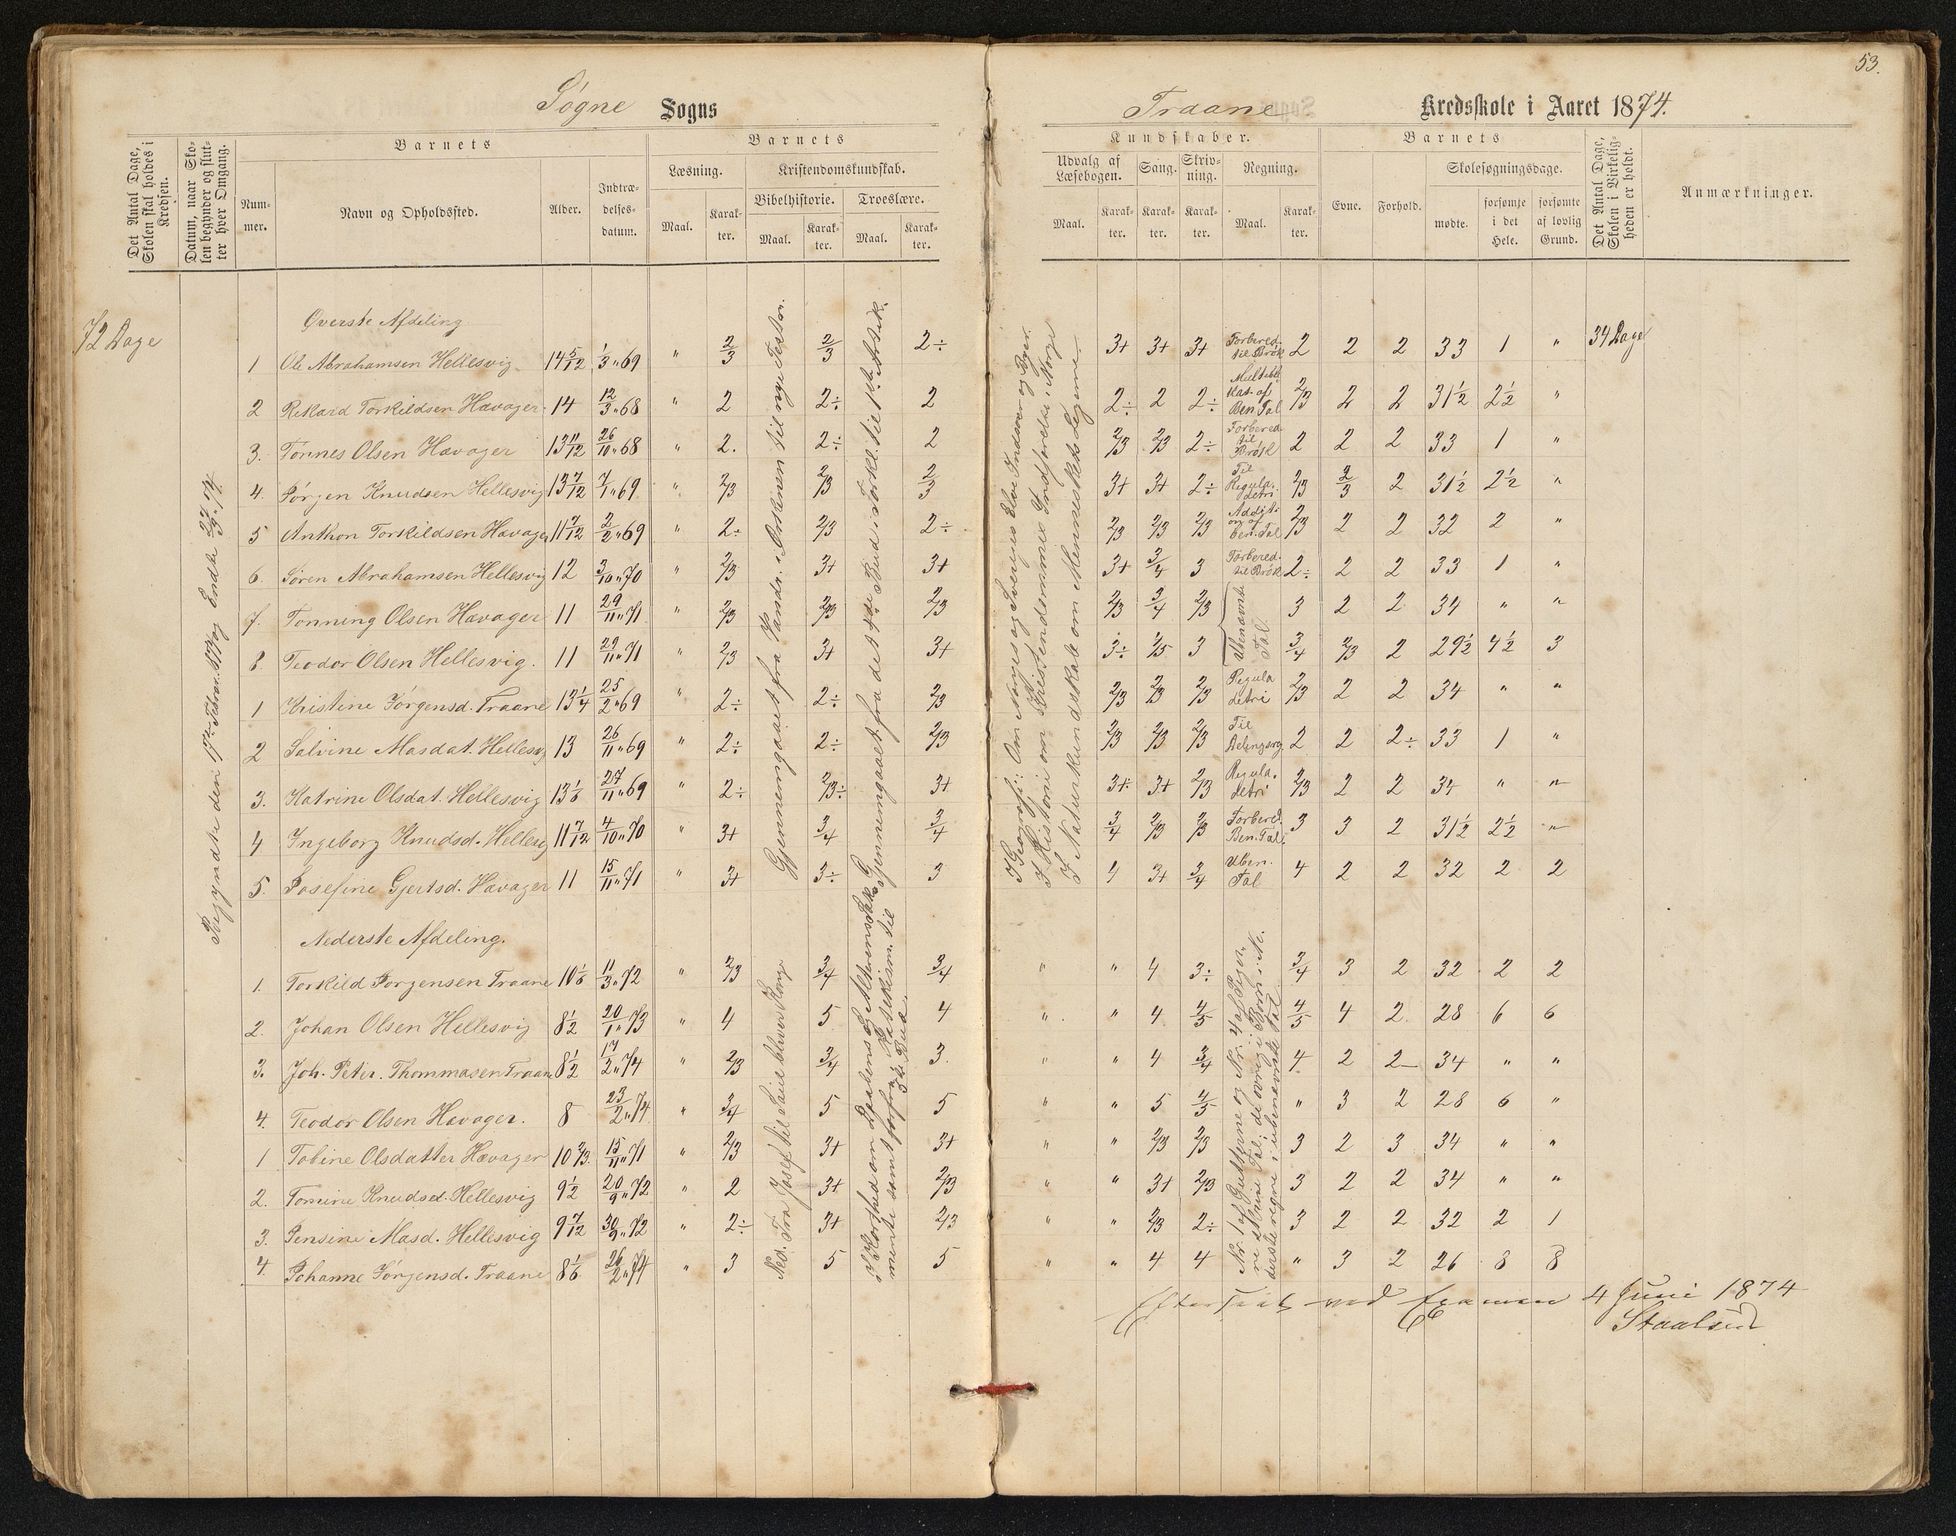 53.
Søgne Sogns
Traane Kredsskole i Aaret 1874.
Det Antal Dage, Skolen skal holdes i Kredsen.
Datum, naar Skolen begynder og slutter hver Omgang.
Barnets
Nummer.
Navn og Opholdssted.
Alder.
Indtrædelsesdatum.
Barnets
Læsning.
Maal.
Karakter.
Kristendomskundskab.
Bibelhistorie.
Maal.
Karakter.
Troeslære.
Maal.
Karakter.
Kundskaber.
Udvalg af Læsebogen.
Maal.
Karakter.
Sang.
Karakter.
Skrivning.
Karakter.
Regning.
Maal.
Karakter.
Barnets
Evne.
Forhold.
Skolesøgningsdage.
mødte.
forsømte i det Hele.
forsømte af lovlig Grund.
Det Antal Dage, Skolen i Virkeligheden er holdt.
Anmærkninger.
72 Dage
34 Dage
Begyndte den 17de Febru. 1874 og Endte 27/3 74.
Øverste Afdeling
1 Ole Abrahamsen Hellesvig 14 5/12 1/3 " 69 " 2/3 2/3 2÷ 3+ 3+ 3+ Forbered. til Brøk 2 2 2 33 1 "
2 Rikard Torkildsen Havager 14 12/3 " 68 " 2 2÷ 2 2÷ 2 2÷ Multiblikat. af Ben. Tal 2/3 2 2 31 1/2 2 1/2 "
3. Tønnes Olsen Havager 13 11/12 26/10 " 68 " 2. 2÷ 2 2/3 2/3 2÷ Forbered til Brøk 2 2 2 33 1 "
4. Jørgen Knudsen Hellesvig 13 7/12 7/1 " 69 " 2/3 2/3 2/3 3+ 3+ 2÷ Til Reguladetri 2/3 2/3 2 31 1/2 2 1/2 "
5 Anthon Torkildsen Havager 11 7/12 2/2 " 69 " 2÷ 2/3 2÷ 2/3 2/3 2/3 Addition af Ben. Tal 2/3 2 2 32 2 "
6. Søren Abrahamsen Hellesvig 12 3/10 " 70 " 2/3 3+ 3+ 3+ 3/4 3 Forbered. til Brøk 2÷ 2 2 33 1 "
7. Tønning Olsen Havager 11 29/11 " 71 " 2/3 2/3 2/3 2/3 3/4 2/3 Ubenævnte Tal 3 2 2 34 " "
8 Teodor Olsen Hellesvig. 11 29/11 " 71 " 2/3 3+ 3+ 3÷ 4/5 3 3/4 2/3 2 29 1/2 4 1/2 3
1 Kristine Jørgensd. Traane 13 1/4 25/2 " 69 " 2÷ 2÷ 2/3 2/3 2/3 2/3 Regula detri 2/3 2 2 34 " "
2 Salvine Masdat. Hellesvig 13 26/11 " 69 " 2÷ 2÷ 2/3 2/3 2/3 2/3 Til 2 2 2÷ 33 1 "
3. Katrine Olsdat. Hellesvig 13 1/6 27/11 " 69 " 2÷ 2/3÷ 3+ 3+ 3+ 2/3 Regula. detri 2/3 2 2 34 " "
4 Ingeborg Knudsd. Hellesvig 11 7/12 4/10 " 70 " 3+ 3/4 3/4 3/4 2/3 2/3 Forbered. Ben. Tal 3 3 2 31 1/2 2 1/2 "
5. Josefine Gjertsd. Havager 11 15/11 " 71 " 3+ 3÷ 3 4 3+ 3/4 Uben. Tal 4 2 2 32 2 2
Gjennemgaaet fra Vandr. i Ørkenen til nye Testa.
Gjennemgaaet fra det 4de Bud i Forkl. til 1ste Artik.
I Geografi: Om Norges og Sveriges Elve Indsøer og Byer.
I Historie om Kristendommens Indførelse i Norge
I Naturkundskab om Menneskets Legeme.
Nederste Afdeling.
1. Torkild Jørgensen Traane 10 1/6 11/3 " 72 " 2/3 3/4 3/4 " " 4 3÷ 3/4 3 2 32 2 2
2. Johan Olsen Hellesvig 8 1/2 20/1 " 73 " 4 5 4 " " 4 4/5 4/5 4 2 28 6 6
3. Joh. Peter. Thommasen Traane 8 1/2 17/2 " 74 " 2/3 3/4 3. " " 4 3/4 4 2 2 34 " "
4. Teodor Olsen Havager. 8 23/2 " 74 " 3/4 5 5 " " 5 4/5 " 3 2 28 6 "
1 Tobine Olsdatter Havager 10 2/3. 15/11 " 71 " 2/3 3+ 3+ " " 2/3 2/3 3 2 3 34 " "
2. Tomine Knudsd. Hellesvig 9 1/2 20/9 " 72 " 2 3+ 2/3 " " 3+ 2/3 3 2 2 34 " "
3. Jensine Masd. Hellesvig 9 7/12 30/9 " 72 " 2÷ 3+ 2/3 " " 2/3 2÷ 3 2 2 32 2 1
4. Johanne Jørgensd. Traane 8 1/6 26/2 " 74 " 3 5 5 " " 4 4 " 3 2 26 8 8
Ned. Fra Josef til Saul bliver Konge
I Korthed om Daabens og Altrens Sak.
Nr. 1 af Gutterne og Nr. 4 af Piger
Efterseet ved Examen 4 Juni 1874
Staalsen